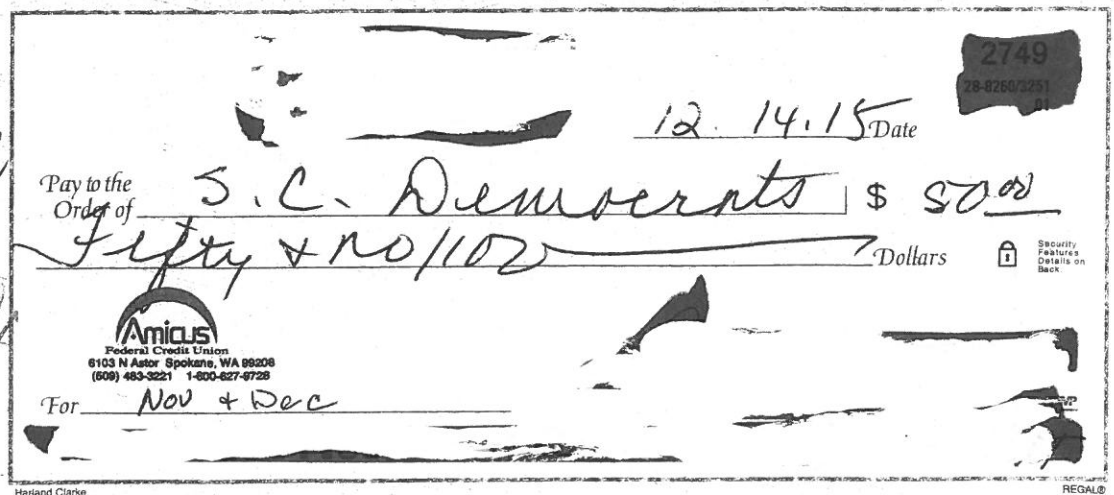 2749
28-8260/3251
01
12. 14.15 Date
Pay to the
Order of S.C. Democrats $ 50.00
Fifty & no/100 Dollars
Security
Features
Details on
Back.
Amicus
Federal Credit Union
6103 N Astor Spokane, WA 99208
(509) 483-3221 1-800-627-9728
For Nov & Dec
MP
Harland Clarke
REGAL®